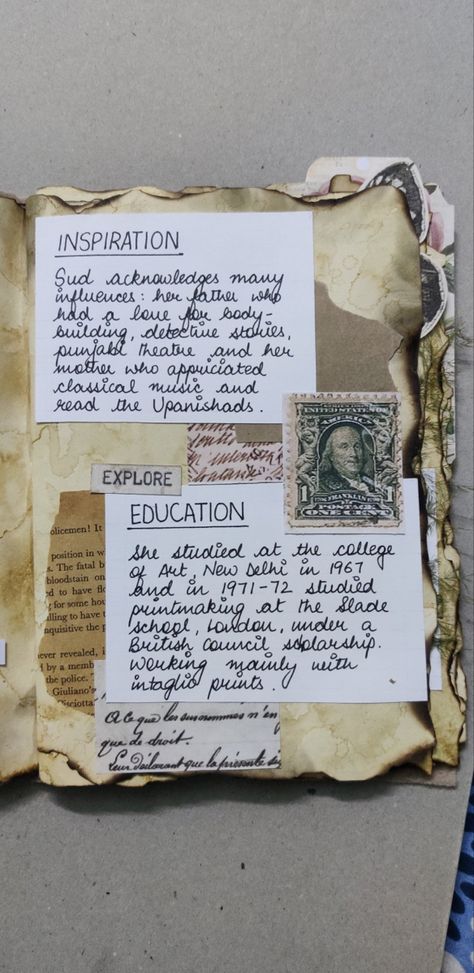 INSPIRATION
Sud acknowledges many
influences: her father who
had a love for body-
building, detective stories,
punjabi theatre and her
mother who appriciated
classical music and
read the Upanishads.
EXPLORE
UNITED STATES OF
AMERICA
1 FRANKLIN 1
POSTAGE
ONE CENT
EDUCATION
She studied at the college
of Art, New Delhi in 1967
and in 1971-72 studied
printmaking at the Slade
school, London, under a
British Council ssolarship.
Working mainly with
intaglio prints.
olicemen! It
position in w
s. The fatal b
bloodstain on
d to have
for some hou
lling to have
nquisitive the p
ver revealed, i
l by a memb
the police. T
Giuliano's
Sciotta
A ce que les surnommes n'en
que de droit.
Leur déclarant que la présente